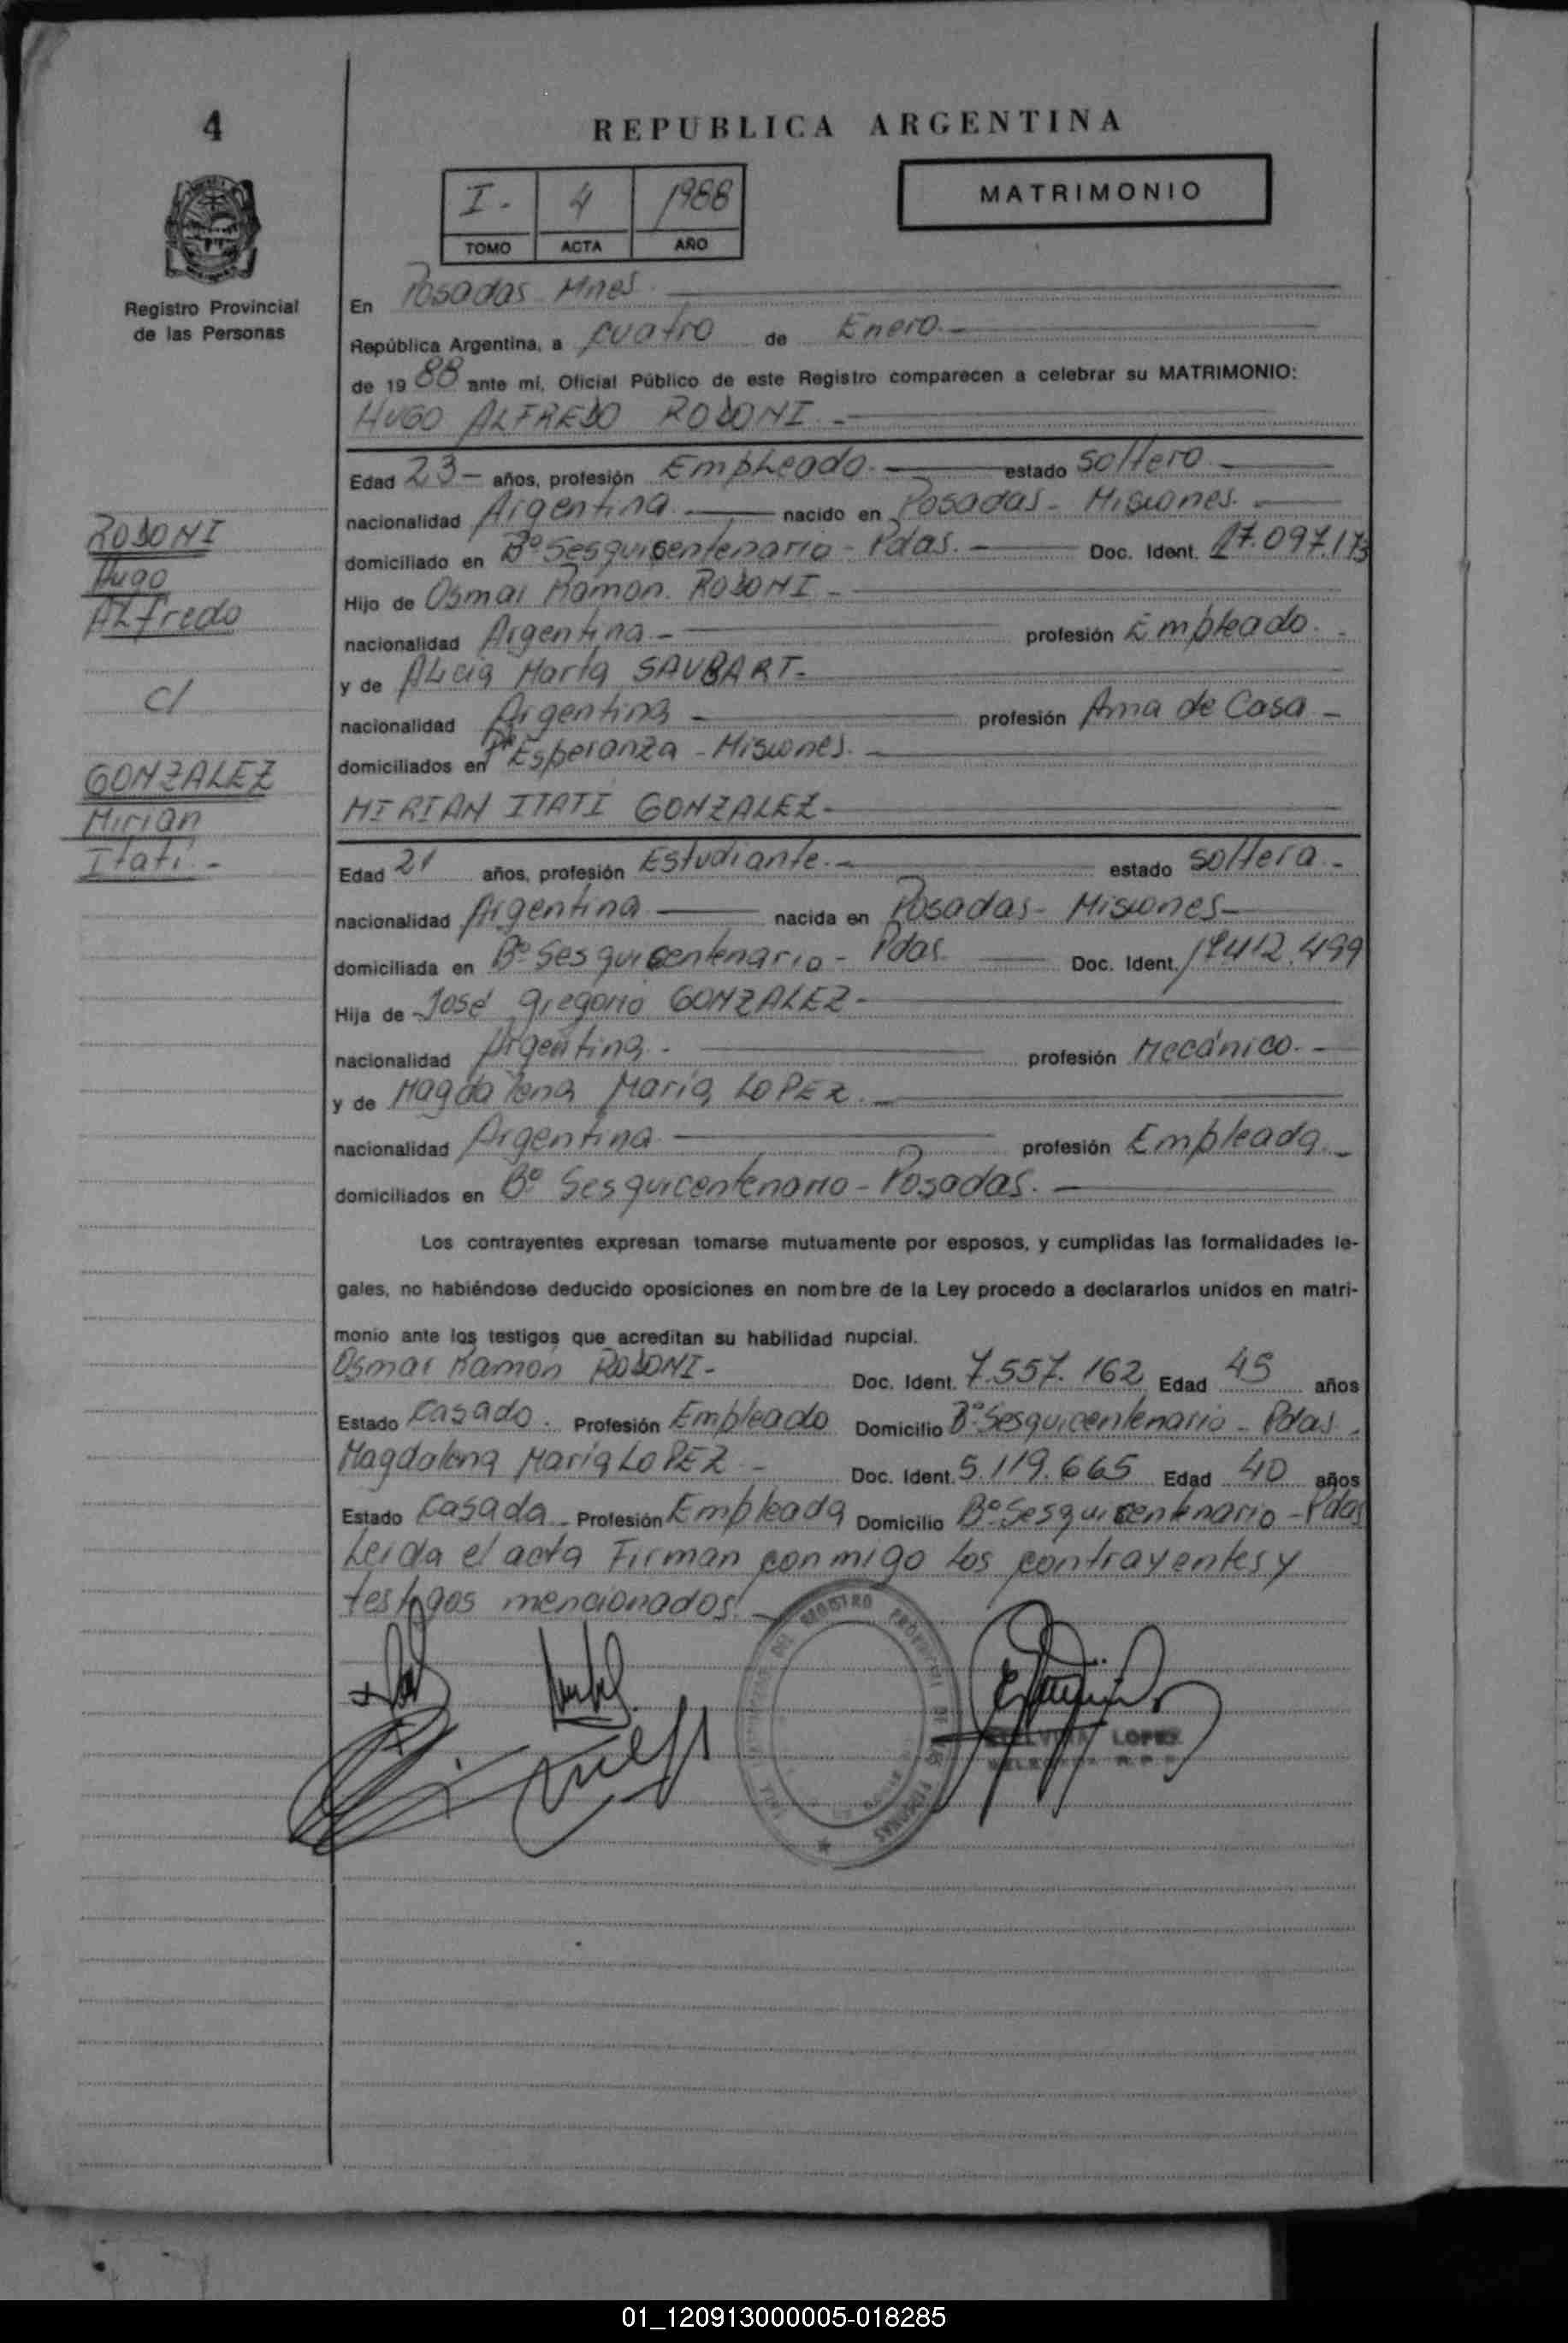 4
REPUBLICA ARGENTINA
I. 4 1988
TOMO ACTA AÑO
MATRIMONIO
Registro Provincial
de las Personas
En Posadas Mnes.
República Argentina, a cuatro de Enero.-
de 1988 ante mí, Oficial Público de este Registro comparecen a celebrar su MATRIMONIO:
HUGO ALFREDO RODONI.-
Edad 23- años, profesión Empleado.- estado soltero.-
nacionalidad Argentina.- nacido en Posadas- Misiones.-
domiciliado en Bº Sesquicentenario- Pdas.- Doc. Ident. 17.097.173
Hijo de Osmar Ramon. RODONI-
nacionalidad Argentina.- profesión Empleado.-
y de Alicia Marta SAUBART.-
nacionalidad Argentina- profesión Ama de Casa-
domiciliados en Pto Esperanza- Misiones.-
MIRIAN ITATI GONZALEZ-
Edad 21 años, profesión Estudiante.- estado soltera.-
nacionalidad Argentina- nacida en Posadas- Misiones-
domiciliada en Bº Sesquicentenario- Pdas. Doc. Ident. 17412.499
Hija de José gregorio GONZALEZ-
nacionalidad Argentina.- profesión Mecánico.-
y de Magdalena Maria LOPEZ.-
nacionalidad Argentina- profesión Empleada.-
domiciliados en Bº Sesquicentenario- Posadas.-
Los contrayentes expresan tomarse mutuamente por esposos, y cumplidas las formalidades le-
gales, no habiéndose deducido oposiciones en nombre de la Ley procedo a declararlos unidos en matri-
monio ante los testigos que acreditan su habilidad nupcial.
Osmar Ramon RODONI- Doc. Ident. 7.557.162 Edad 45 años
Estado Casado. Profesión Empleado Domicilio Bº Sesquicentenario- Pdas.
Magdalena Maria LOPEZ- Doc. Ident. 5.119.665 Edad 40 años
Estado Casada- Profesión Empleada Domicilio Bº Sesquicentenario- Pdas
Leida el acta Firman conmigo los contrayentes y
testigos mencionados.-
RODONI
Hugo
Alfredo
c/
GONZALEZ
Mirian
Itatí.-
REGISTRO PROVINCIAL DE LAS PERSONAS
LOPEZ
01_120913000005-018285